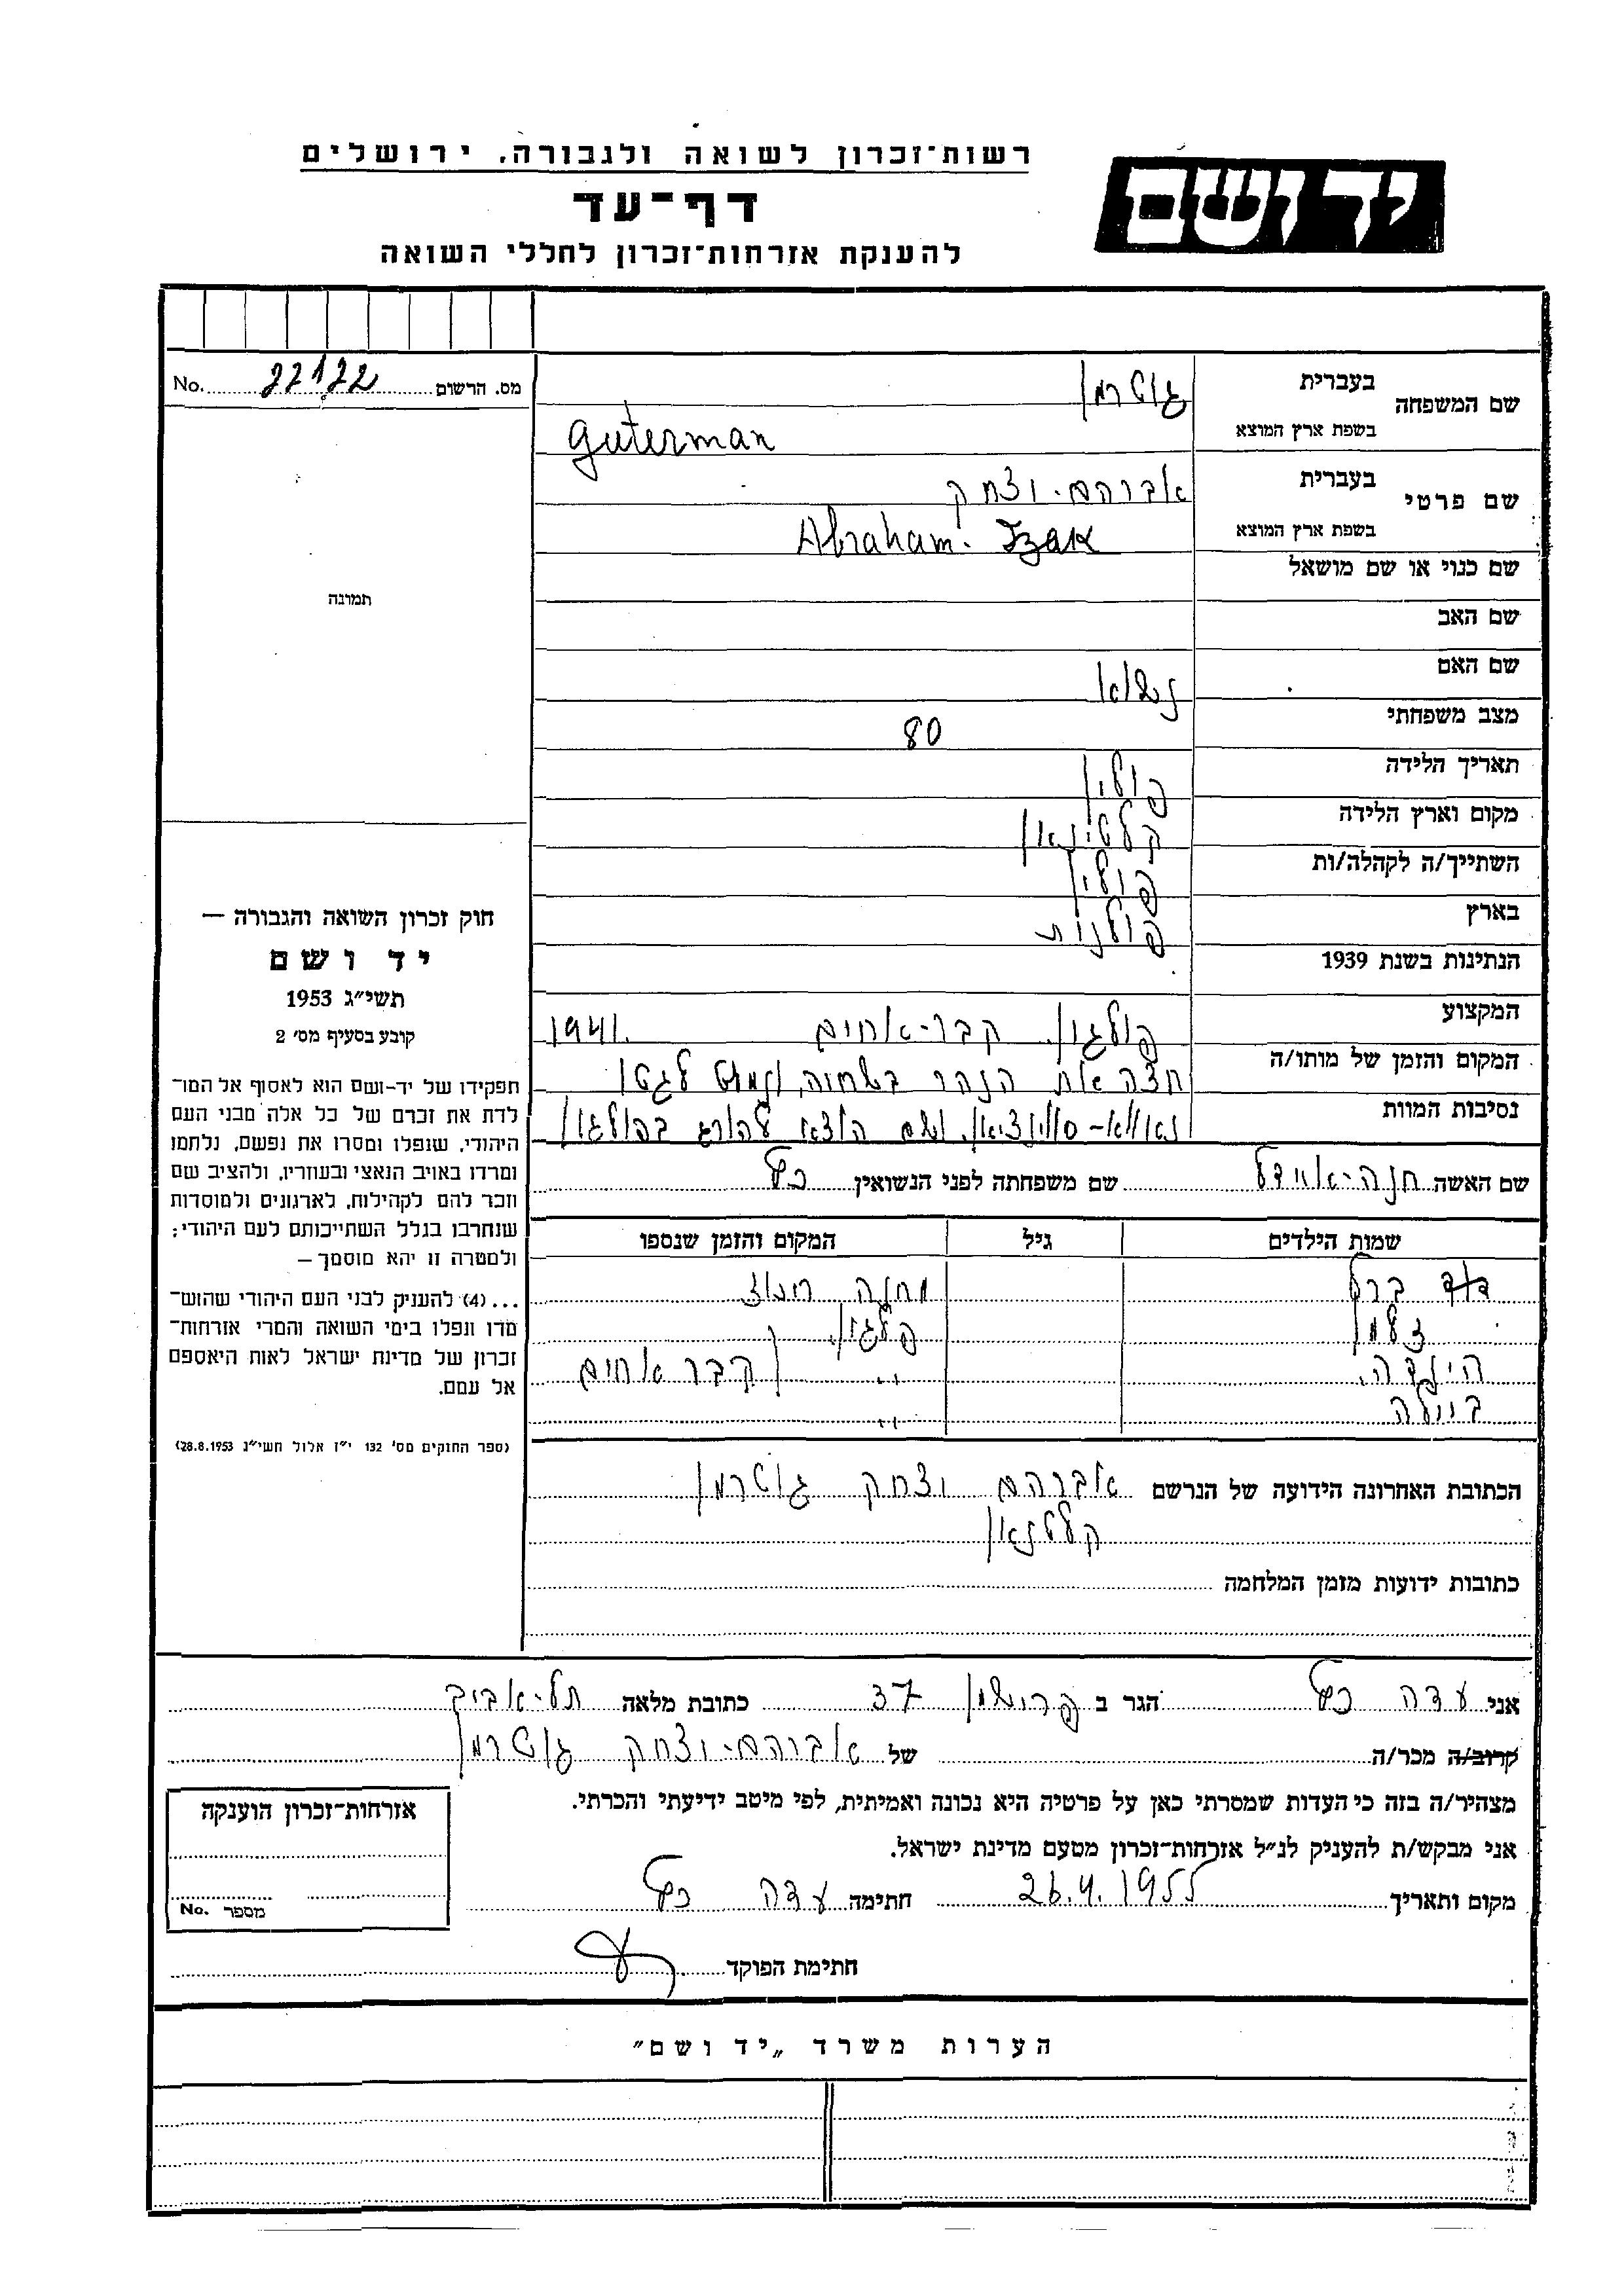 רשות־זכרון לשואה ולגבורה, ירושלים
יד ושם
דף־עד
להענקת אזרחות־זכרון לחללי השואה
מס. הרשום 22122 No.
שם המשפחה
בעברית גוטרמן
בשפת ארץ המוצא Guterman
שם פרטי
בעברית אברהם-יצחק
בשפת ארץ המוצא Abraham-Izak
שם כנוי או שם מושאל
שם האב
שם האם
מצב משפחתי נשוי
תאריך הלידה 80
מקום וארץ הלידה פולין
השתייך/ה לקהלה/ות
בארץ פולין
הנתינות בשנת 1939 פולנית
המקצוע
המקום והזמן של מותו/ה פוליגון. קבר-אחים 1941.
נסיבות המוות חצה את הנהר בשחיה,
ושם הוצא להורג בפוליגון
שם האשה חנה- שם משפחתה לפני הנשואין כץ
שמות הילדים גיל המקום והזמן שנספו
דוד ברל מחנה
זלמן פוליגון.
הילדה. " קבר אחים
ביילה "
הכתובת האחרונה הידועה של הנרשם אברהם יצחק גוטרמן
כתובות ידועות מזמן המלחמה
תמונה
חוק זכרון השואה והגבורה —
יד ושם
תשי״ג 1953
קובע בסעיף מס׳ 2
תפקידו של יד־ושם הוא לאסוף אל המו־
לדת את זכרם של כל אלה מבני העם
היהודי, שנפלו ומסרו את נפשם, נלחמו
ומרדו באויב הנאצי ובעוזריו, ולהציב שם
וזכר להם לקהילות, לארגונים ולמוסדות
שנחרבו בגלל השתייכותם לעם היהודי;
ולמטרה זו יהא מוסמך —
...(4) להעניק לבני העם היהודי שהוש־
מדו ונפלו בימי השואה והמרי אזרחות־
זכרון של מדינת ישראל לאות היאספם
אל עמם.
(ספר החוקים מס׳ 132 י״ז אלול תשי״ג 28.8.1953)
אני עדה כץ הגר ב פרישמן 37 כתובת מלאה תל-אביב
קרוב/ה מכר/ה של אברהם-יצחק גוטרמן
מצהיר/ה בזה כי העדות שמסרתי כאן על פרטיה היא נכונה ואמיתית, לפי מיטב ידיעתי והכרתי.
אני מבקש/ת להעניק לנ״ל אזרחות־זכרון מטעם מדינת ישראל.
מקום ותאריך 26.4.1955 חתימה עדה כץ
חתימת הפוקד
אזרחות־זכרון הוענקה
מספר No.
הערות משרד „יד ושם״